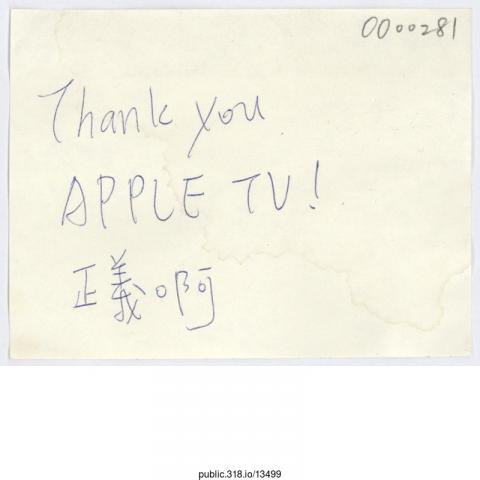 0000281
Thank you
APPLE TV!
正義啊
public.318.io/13499